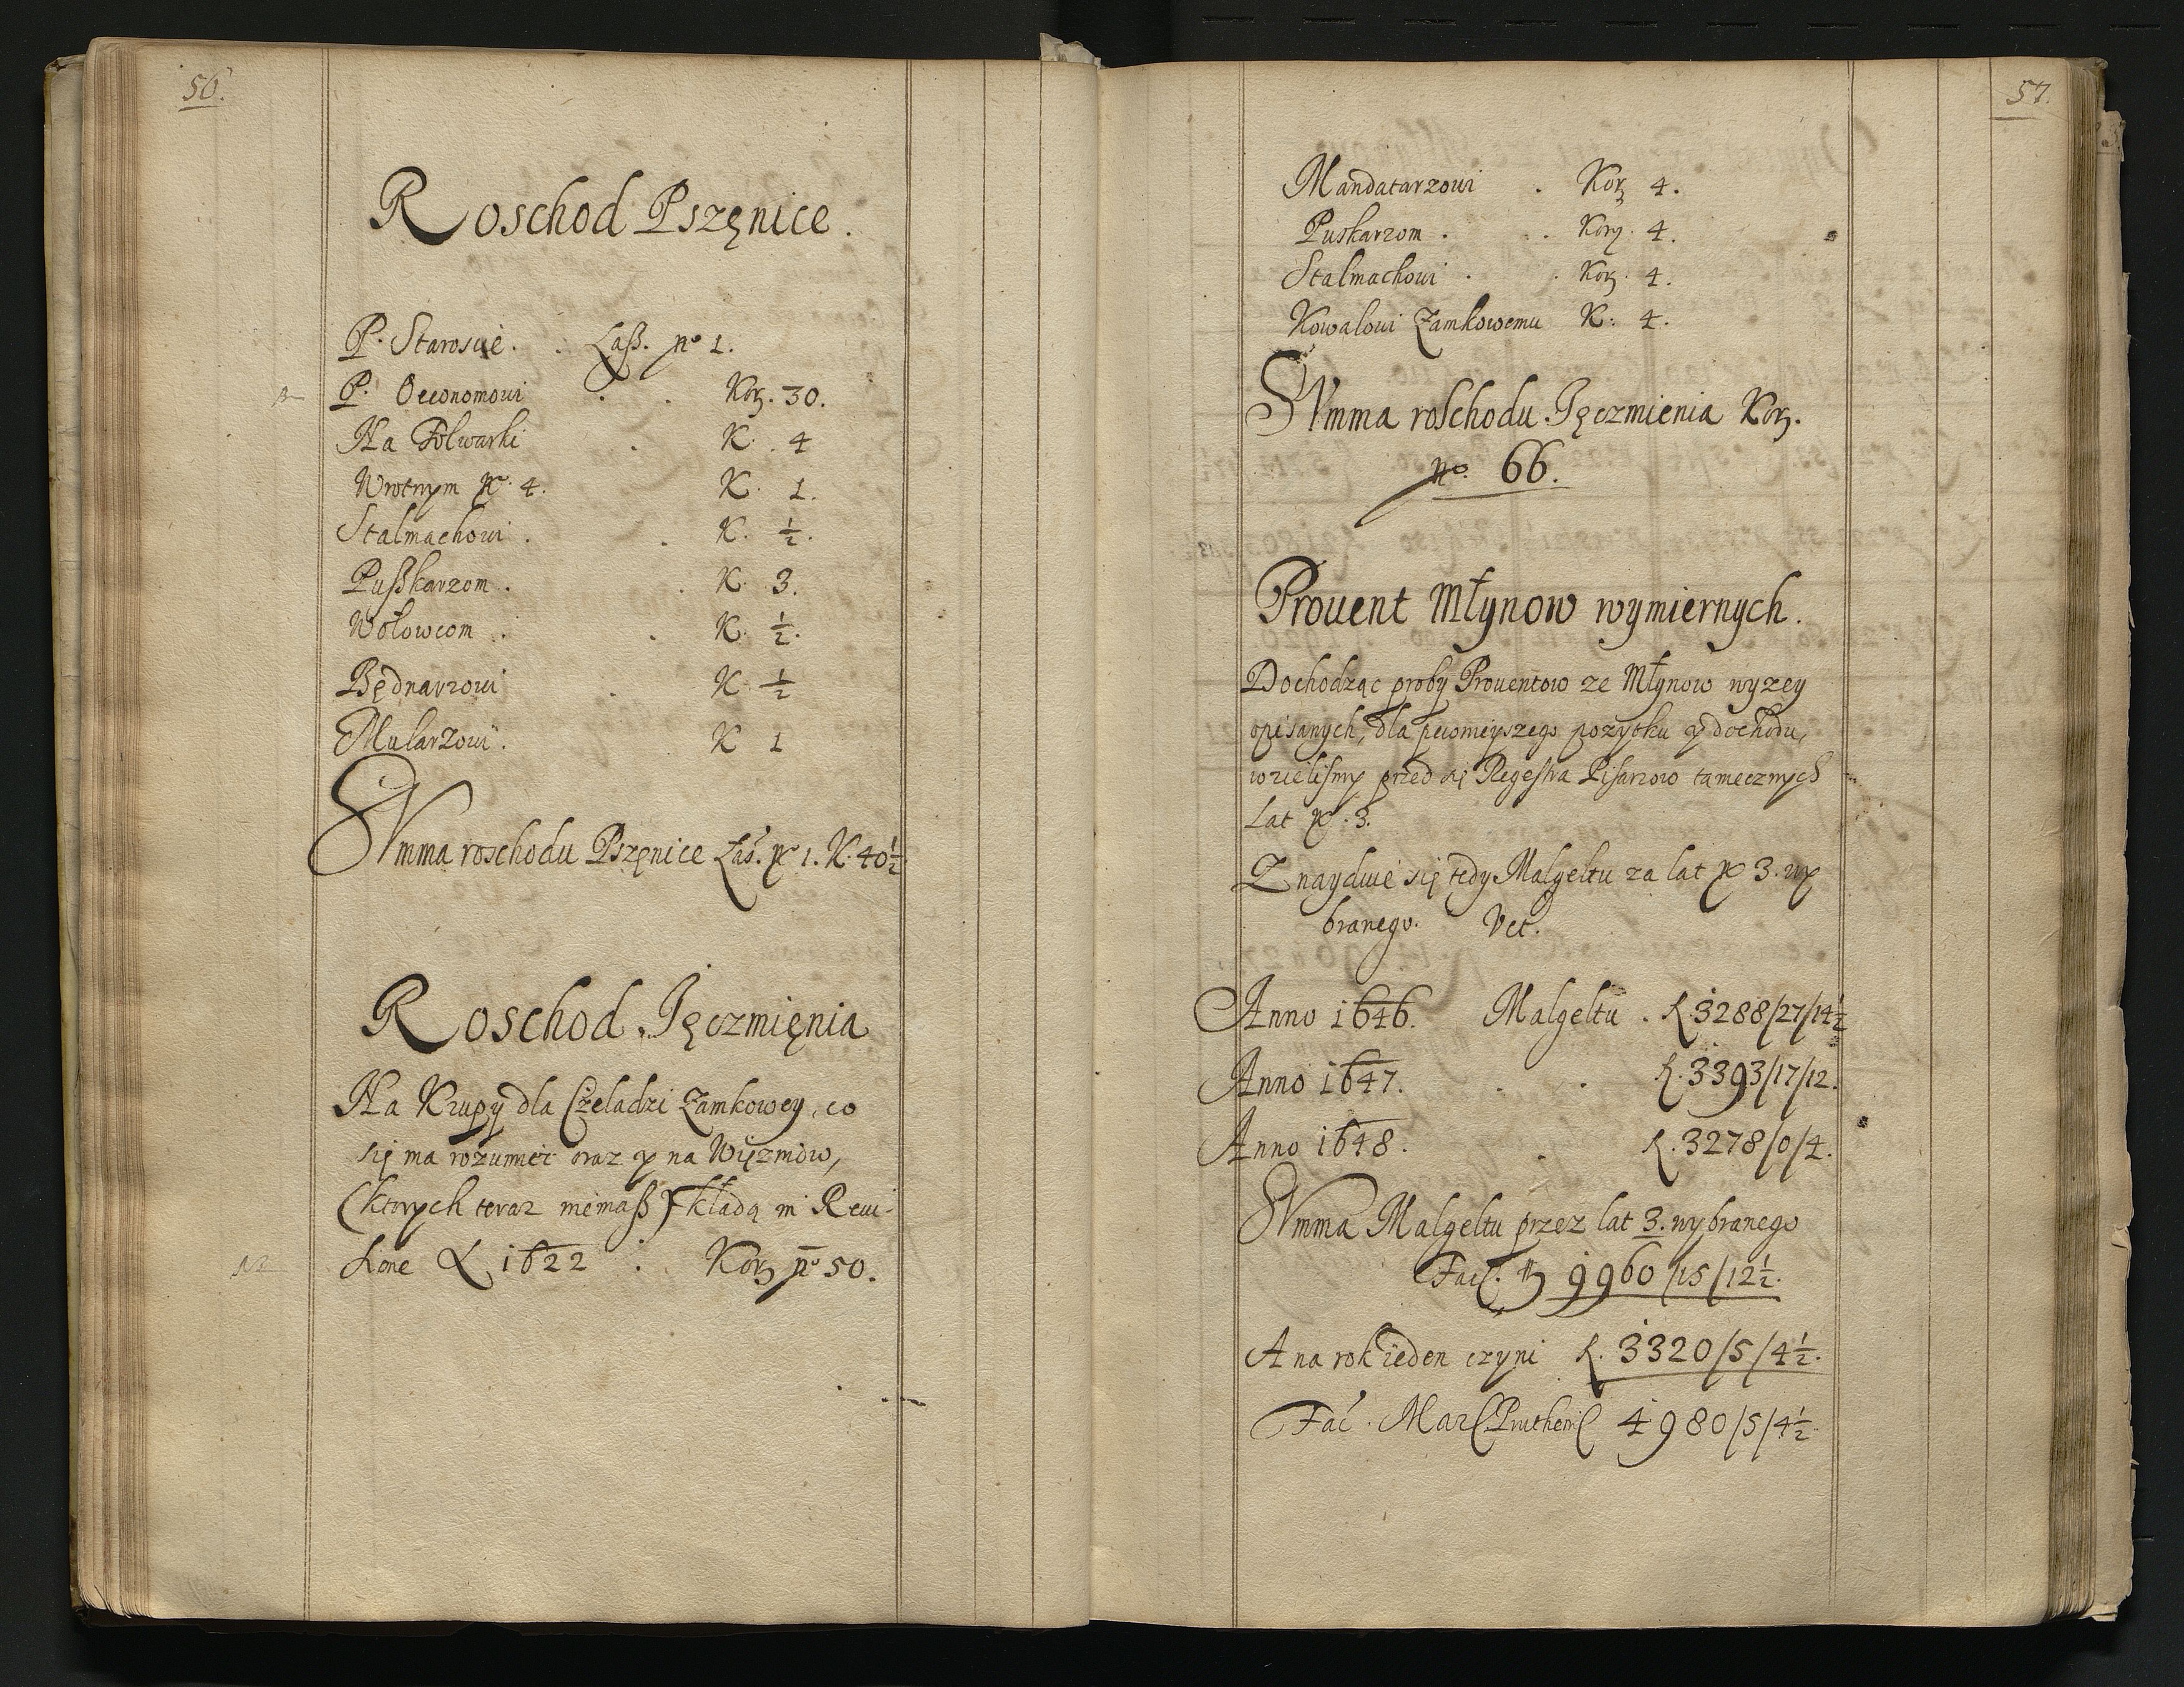 56.
Roschod Pszęnice.
P. Staroscie . . Laß. no 1.
P. Oeconomowi . . Korz. 30.
Na Folwarki . K. 4
Wrotnym No. 4. K. 1.
Stalmachowi . . K. ½.
Pußkarzom . . K. 3.
Wołowcom . . K. ½.
Będnarzowi . K. ½
Mularzowi . K 1
Summa roschodu Pszęnice Łas. No 1. K. 40½
Roschod Jęczmięnia
Na Krupy dla Czeladzi Zamkowey, co
się ma rozumiec oraz y na Więzniow,
(ktorych teraz niemaß) kładą in Rewi-
sione 1622 . Korz no 50.
57.
Mandatarzowi . Korz 4.
Puskarzom . . Korz. 4.
Stalmachowi . . Korz. 4.
Kowalowi Zamkowemu K. 4.
Summa roschodu Jęczmienia Korz.
no. 66.
Prouent Młynow wymiernych.
Dochodząc proby Prouentow ze Młynow wyzey
opisanych, dla pewnieyszego pozytku y dochodu,
wzielismy przed się Regestra Pisarzow tamecznych
Lat No. 3.
Znayduie się tedy Malgeltu za lat No 3. wy
branego. Vct.
Anno 1646. Malgeltu . f. 3288/27/14½
Anno 1647. . . f. 3393/17/12.
Anno 1648. . f. 3278/0/4.
Summa Malgeltu przez lat 3. wybranego
Fac. 9960/15/12½.
A na rok ieden czyni f. 3320/5/4½.
Fac. Marc. Pruthenic 4980/5/4½